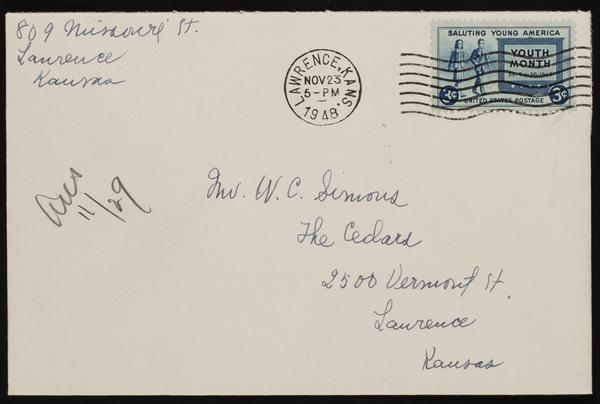 809 Missouri St.
Lawrence
Kansas
LAWRENCE, KANS.
NOV 23
5-PM
1948
SALUTING YOUNG AMERICA
YOUTH
MONTH
SEPT. 1-30, 1948
3¢ 3¢
UNITED STATES POSTAGE
Ans
11/29
Mr. W. C. Simons
The Cedars
2500 Vermont St.
Lawrence
Kansas